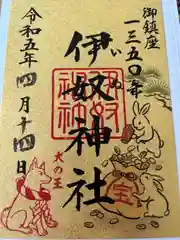 御鎮座
一三五〇年
伊奴神社
いぬ
令和五年四月十四日
犬の王
宝